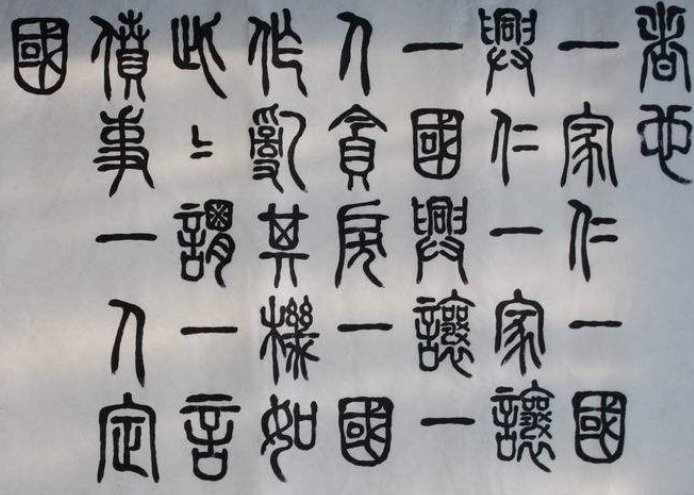 者也
一家仁一國
興仁一家讓
一國興讓一
人貪戾一國
作亂其機如
此〻謂一言
僨事一人定
國